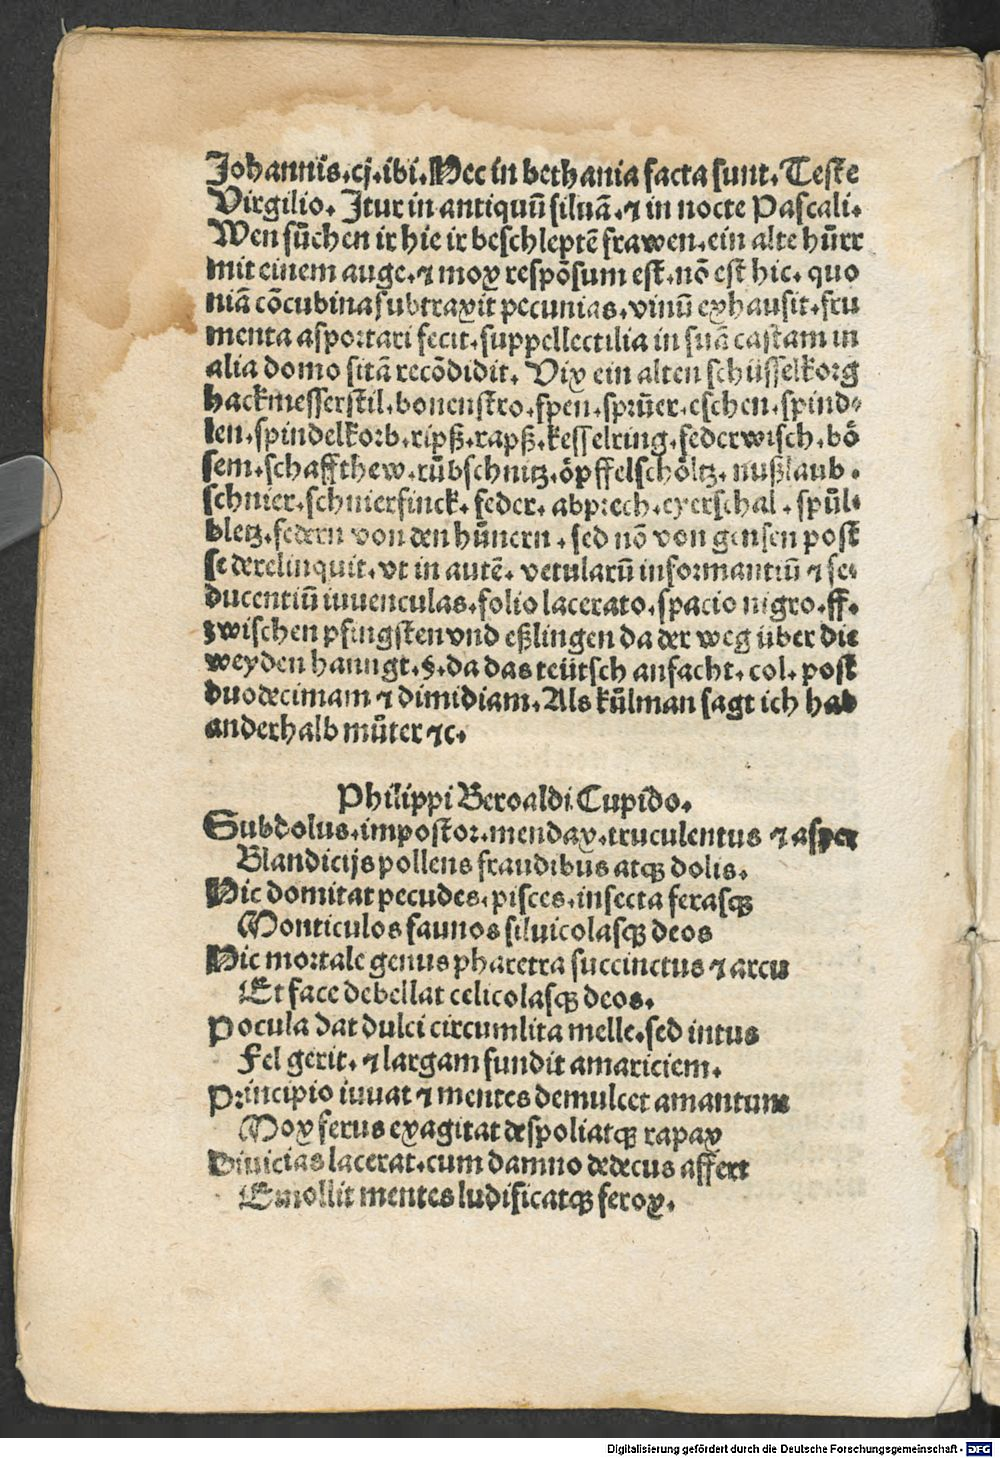 Johannis.cj.ibi.Hec in bethania facta sunt.Teste
Virgilio. Itur in antiquū siluā.⁊ in nocte Pascali.
Wen sůchen ir hie ir beschleptē frawen.ein alte hůrr
mit einem auge.⁊ mox respōsum est.nō est hic. quo
niā cōcubina subtraxit pecunias.vinū exhausit.fru
menta asportari fecit.suppellectilia in suā castam in
alia domo sitā recōdidit. Vix ein alten schüsselkorg
hackmesserstil.bonenstro.spen.sprüer.eschen.spind⸗
len.spindelkorb.ripß.rapß.kesselring.federwisch.bö
sem.schaffthew.růbschnitz.öpffelschöltz.nußlaub.
schmer.schmerfinck.feder.abprech.eyerschal.spůl⸗
bletz.federn von den hůnern.sed nō von gensen post
se derelinquit.vt in autē.vetularū informantiū ⁊ se⸗
ducentiū iuuenculas.folio lacerato.spacio nigro.ff.
zwischen pfingsten vnd eßlingen da der weg über die
weyden hanngt.§.da das teütsch anfacht.col.post
duodecimam ⁊ dimidiam.Als kůlman sagt ich hab
anderhalb můter ⁊c.
Philippi Beroaldi Cupido.
Subdolus.impostor.mendax.truculentus ⁊ asper
Blandicijs pollens fraudibus atqꝫ dolis.
Hic domitat pecudes.pisces.insecta ferasqꝫ
Monticulos faunos siluicolasqꝫ deos
Hic mortale genus pharetra succinctus ⁊ arcu
Et face debellat celicolasqꝫ deos.
Pocula dat dulci circumlita melle.sed intus
Fel gerit.⁊ largam fundit amariciem.
Principio iuuat ⁊ mentes demulcet amantum
Mox ferus exagitat despoliatqꝫ rapax
Diuicias lacerat.cum damno dedecus affert
Emollit mentes ludificatqꝫ ferox.
Digitalisierung gefördert durch die Deutsche Forschungsgemeinschaft - DFG